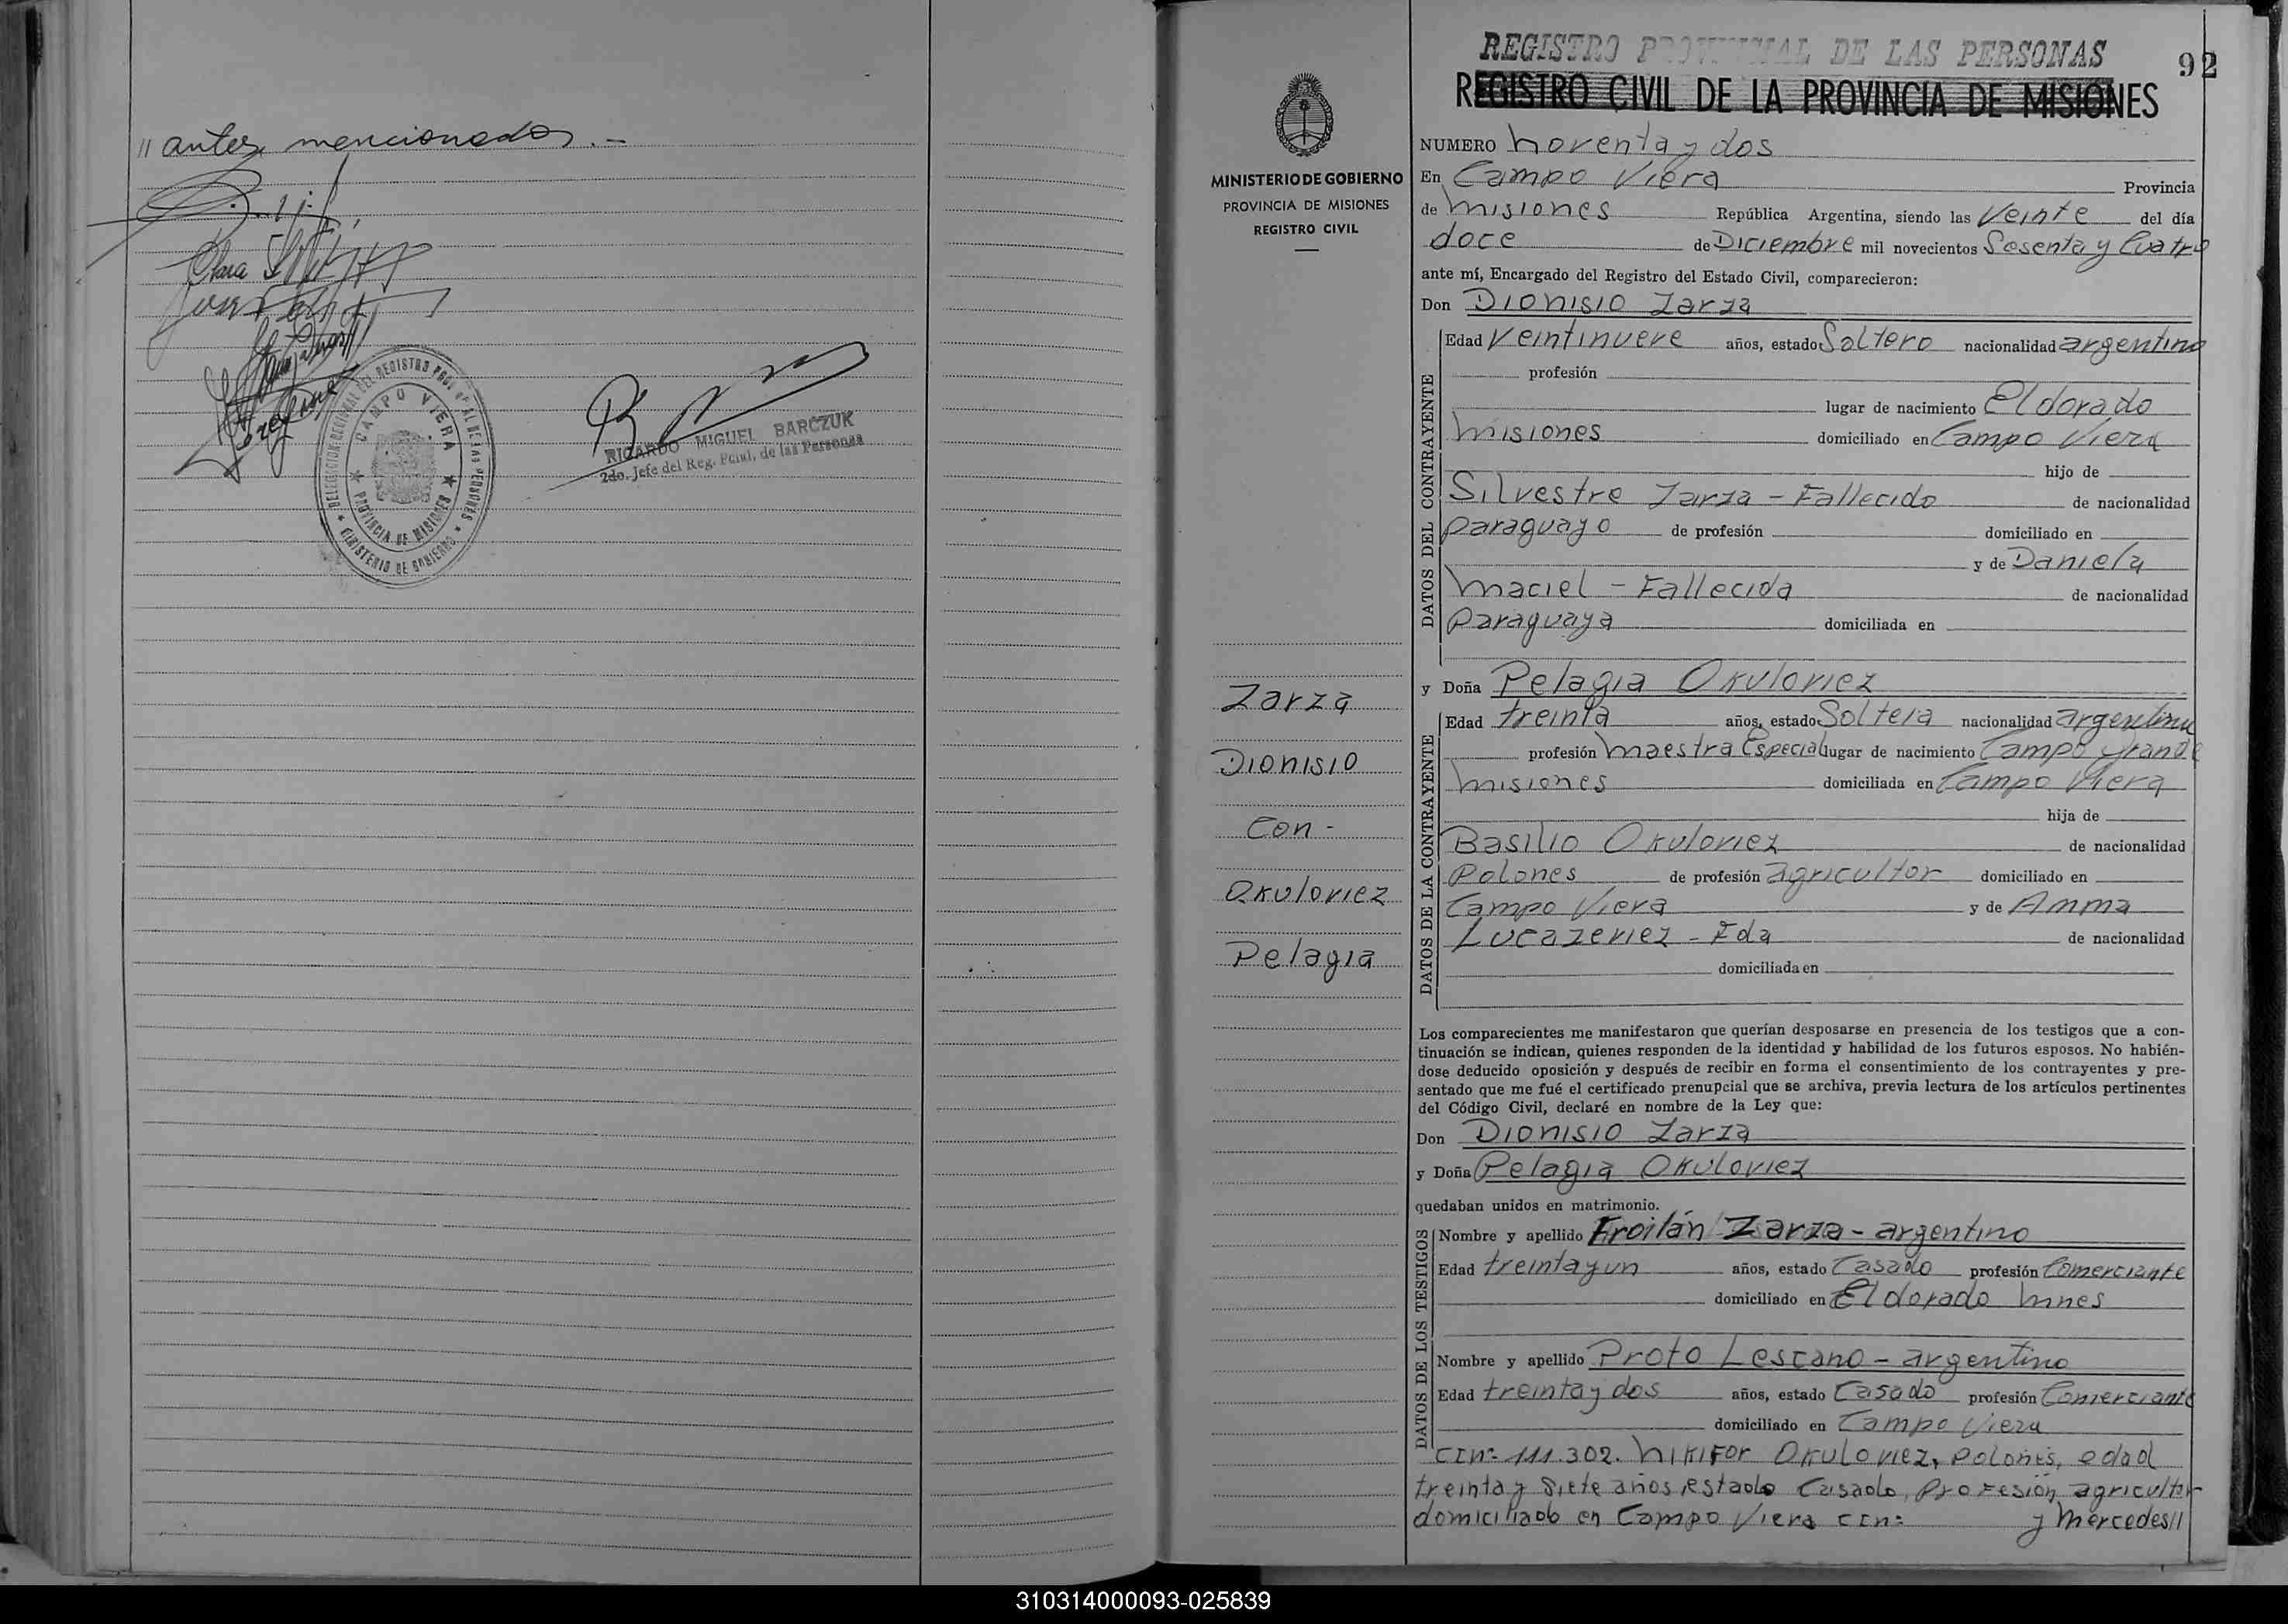 // antes mencionados.-
DELEGACION REGIONAL DEL REGISTRO PROV. DE LAS PERSONAS
CAMPO VIERA
PROVINCIA DE MISIONES
MINISTERIO DE GOBIERNO
RICARDO MIGUEL BARCZUK
2do. Jefe del Reg. Pcial. de las Personas
REGISTRO PROVINCIAL DE LAS PERSONAS
92
REGISTRO CIVIL DE LA PROVINCIA DE MISIONES
MINISTERIO DE GOBIERNO
PROVINCIA DE MISIONES
REGISTRO CIVIL
Zarza
Dionisio
Con -
Okuloviez
Pelagia
NUMERO noventa y dos
En Campo Viera Provincia
de Misiones República Argentina, siendo las Veinte del día
doce de Diciembre mil novecientos Sesenta y Cuatro
ante mí, Encargado del Registro del Estado Civil, comparecieron:
Don Dionisio Zarza
DATOS DEL CONTRAYENTE
Edad Veintinueve años, estado Soltero nacionalidad argentino
profesión
lugar de nacimiento Eldorado
Misiones domiciliado en Campo Viera
hijo de
Silvestre Zarza - Fallecido de nacionalidad
Paraguayo de profesión domiciliado en
y de Daniela
Maciel - Fallecida de nacionalidad
Paraguaya domiciliada en
y Doña Pelagia Okuloviez
DATOS DE LA CONTRAYENTE
Edad treinta años, estado Soltera nacionalidad argentina
profesión Maestra Especial lugar de nacimiento Campo Grande
Misiones domiciliada en Campo Viera
hija de
Basilio Okuloviez de nacionalidad
Polones de profesión agricultor domiciliado en
Campo Viera y de Anma
Lucazeviez - Fda de nacionalidad
domiciliada en
Los comparecientes me manifestaron que querían desposarse en presencia de los testigos que a con-
tinuación se indican, quienes responden de la identidad y habilidad de los futuros esposos. No habién-
dose deducido oposición y después de recibir en forma el consentimiento de los contrayentes y pre-
sentado que me fué el certificado prenupcial que se archiva, previa lectura de los artículos pertinentes
del Código Civil, declaré en nombre de la Ley que:
Don Dionisio Zarza
y Doña Pelagia Okuloviez
quedaban unidos en matrimonio.
DATOS DE LOS TESTIGOS
Nombre y apellido Froilán Zarza - argentino
Edad treinta y un años, estado Casado profesión Comerciante
domiciliado en Eldorado Mnes
Nombre y apellido Proto Lescano - argentino
Edad treinta y dos años, estado Casado profesión Comerciante
domiciliado en Campo Viera
CIn: 111.302. Nikifor Okuloviez, Polones, edad
treinta y Siete años, estado Casado, Profesión agricultor
domiciliado en Campo Viera CIn: y Mercedes//
310314000093-025839